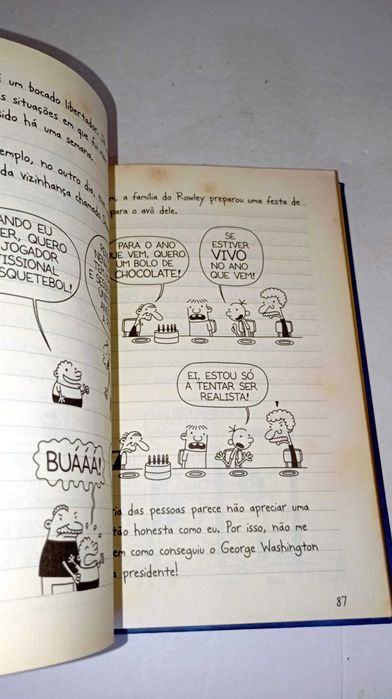 um bocado libertador.
s situações em que
sido há uma semana.
emplo, no outro dia,
da vizinhança chamado
ANDO EU
ER, QUERO
JOGADOR
FISSIONAL
SQUETEBOL!
E
BUÁÁÁ!
a família do Rowley preparou uma festa de
para o avô dele.
PARA O ANO
QUE VEM, QUERO
UM BOLO DE
CHOCOLATE!
SE
ESTIVER
VIVO
NO ANO
QUE VEM!
EI, ESTOU SÓ
A TENTAR SER
REALISTA!
ria das pessoas parece não apreciar uma
tão honesta como eu. Por isso, não me
em como conseguiu o George Washington
a presidente!
87